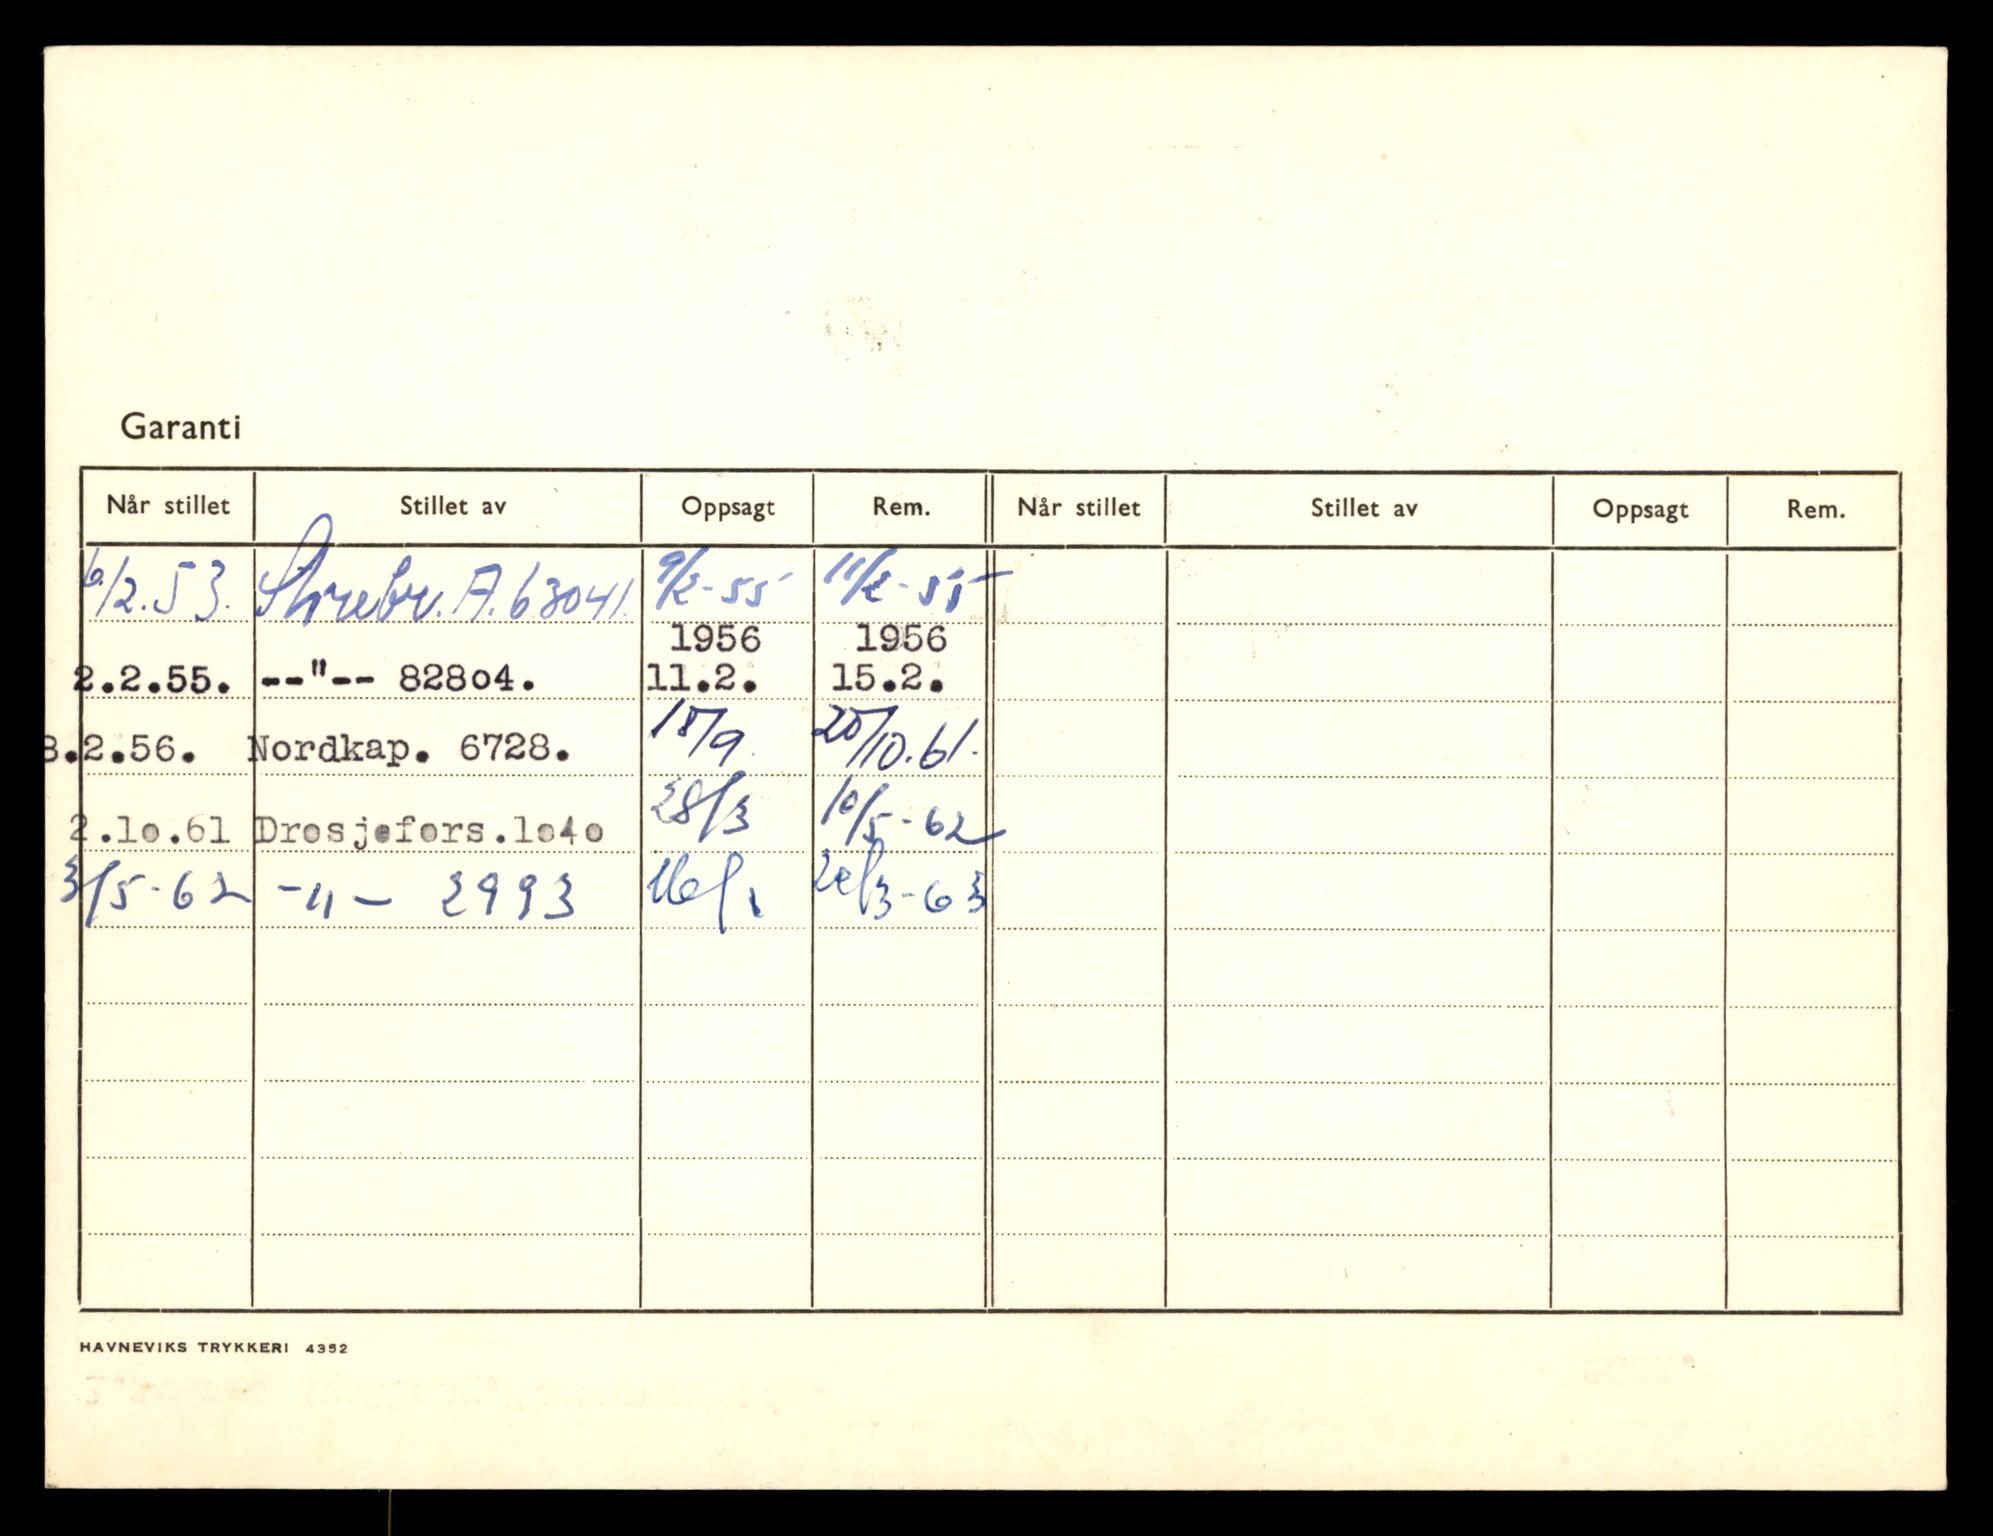 Garanti
Når stillet Stillet av Oppsagt Rem. Når stillet Stillet av Oppsagt Rem.
6/2.53. Storebr. A.63041. 9/2-55 11/2-55
1956 1956
2.2.55. --"-- 828o4. 11.2. 15.2.
8.2.56. Nordkap. 6728. 18/9. 20/10.61.
2.1o.61 Drosjefors.1o4o 28/3 10/5-62
3/5-62 -"- 2993 16/1 20/3-63
HAVNEVIKS TRYKKERI 4352